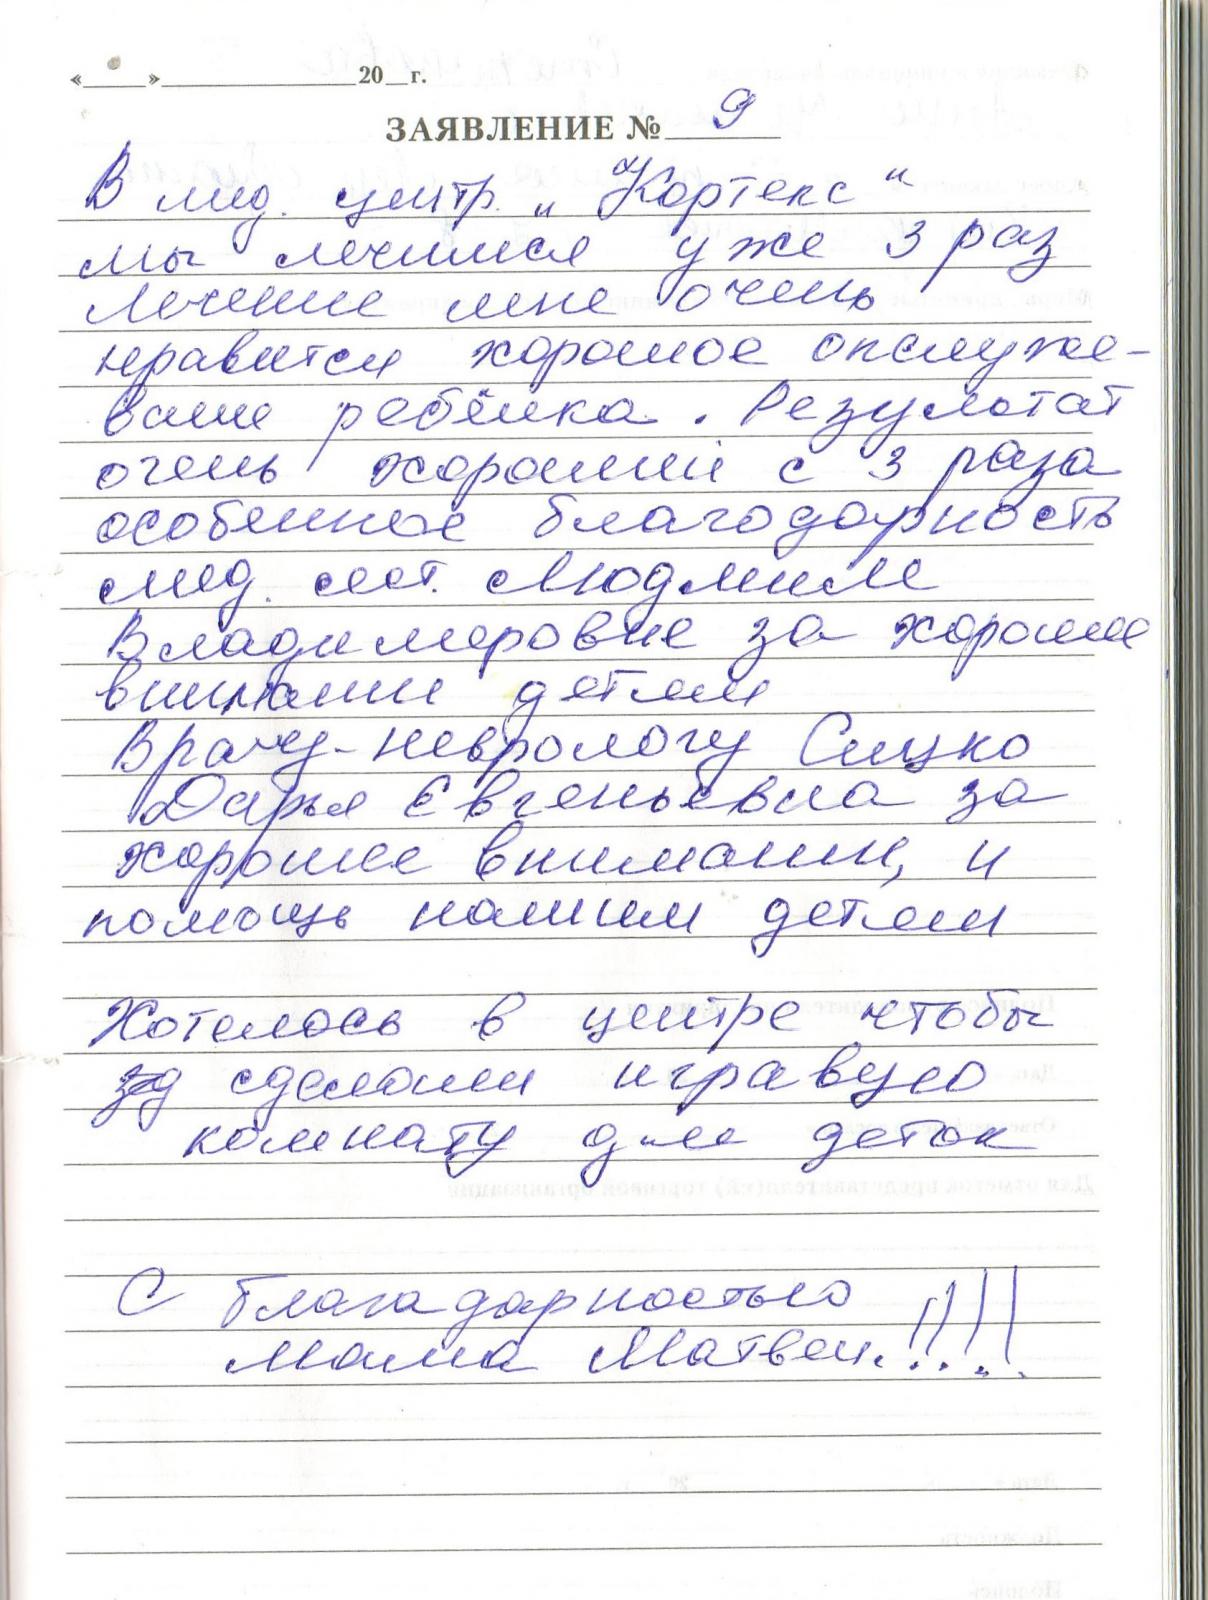 «____»______________20__г.
ЗАЯВЛЕНИЕ № 9
В мед. центр. „Кортекс“
мы лечимся уже 3 раз
лечение мне очень
нравится хорошое опслуже-
вание ребёнка. Результат
очень хороший с 3 раза
особенное благодарность
мед. сест. Людмиле
Владимеровне за хорошие
внимании детям
Врачу-неврологу Сицко
Дарья Євгеньевна за
хорошее внимании, и
помощь нашим детям
Хотелось в центре чтобы
сделали игравую
комнату для деток
С благадарностью
мама Матвея.!!!!